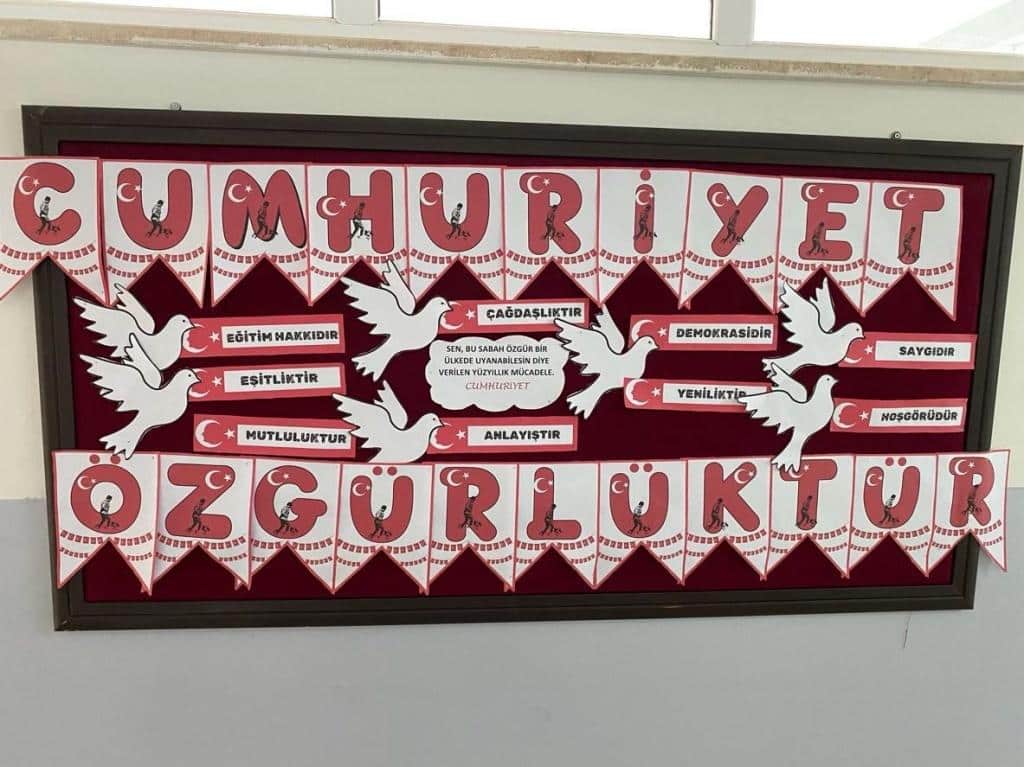 CUMHURİYET
EĞİTİM HAKKIDIR
ÇAĞDAŞLIKTIR
DEMOKRASİDİR
SAYGIDIR
SEN, BU SABAH ÖZGÜR BİR
ÜLKEDE UYANABİLESİN DİYE
VERİLEN YÜZYILLIK MÜCADELE.
CUMHURİYET
EŞİTLİKTİR
YENİLİKTİR
HOŞGÖRÜDÜR
MUTLULUKTUR
ANLAYIŞTIR
ÖZGÜRLÜKTÜR